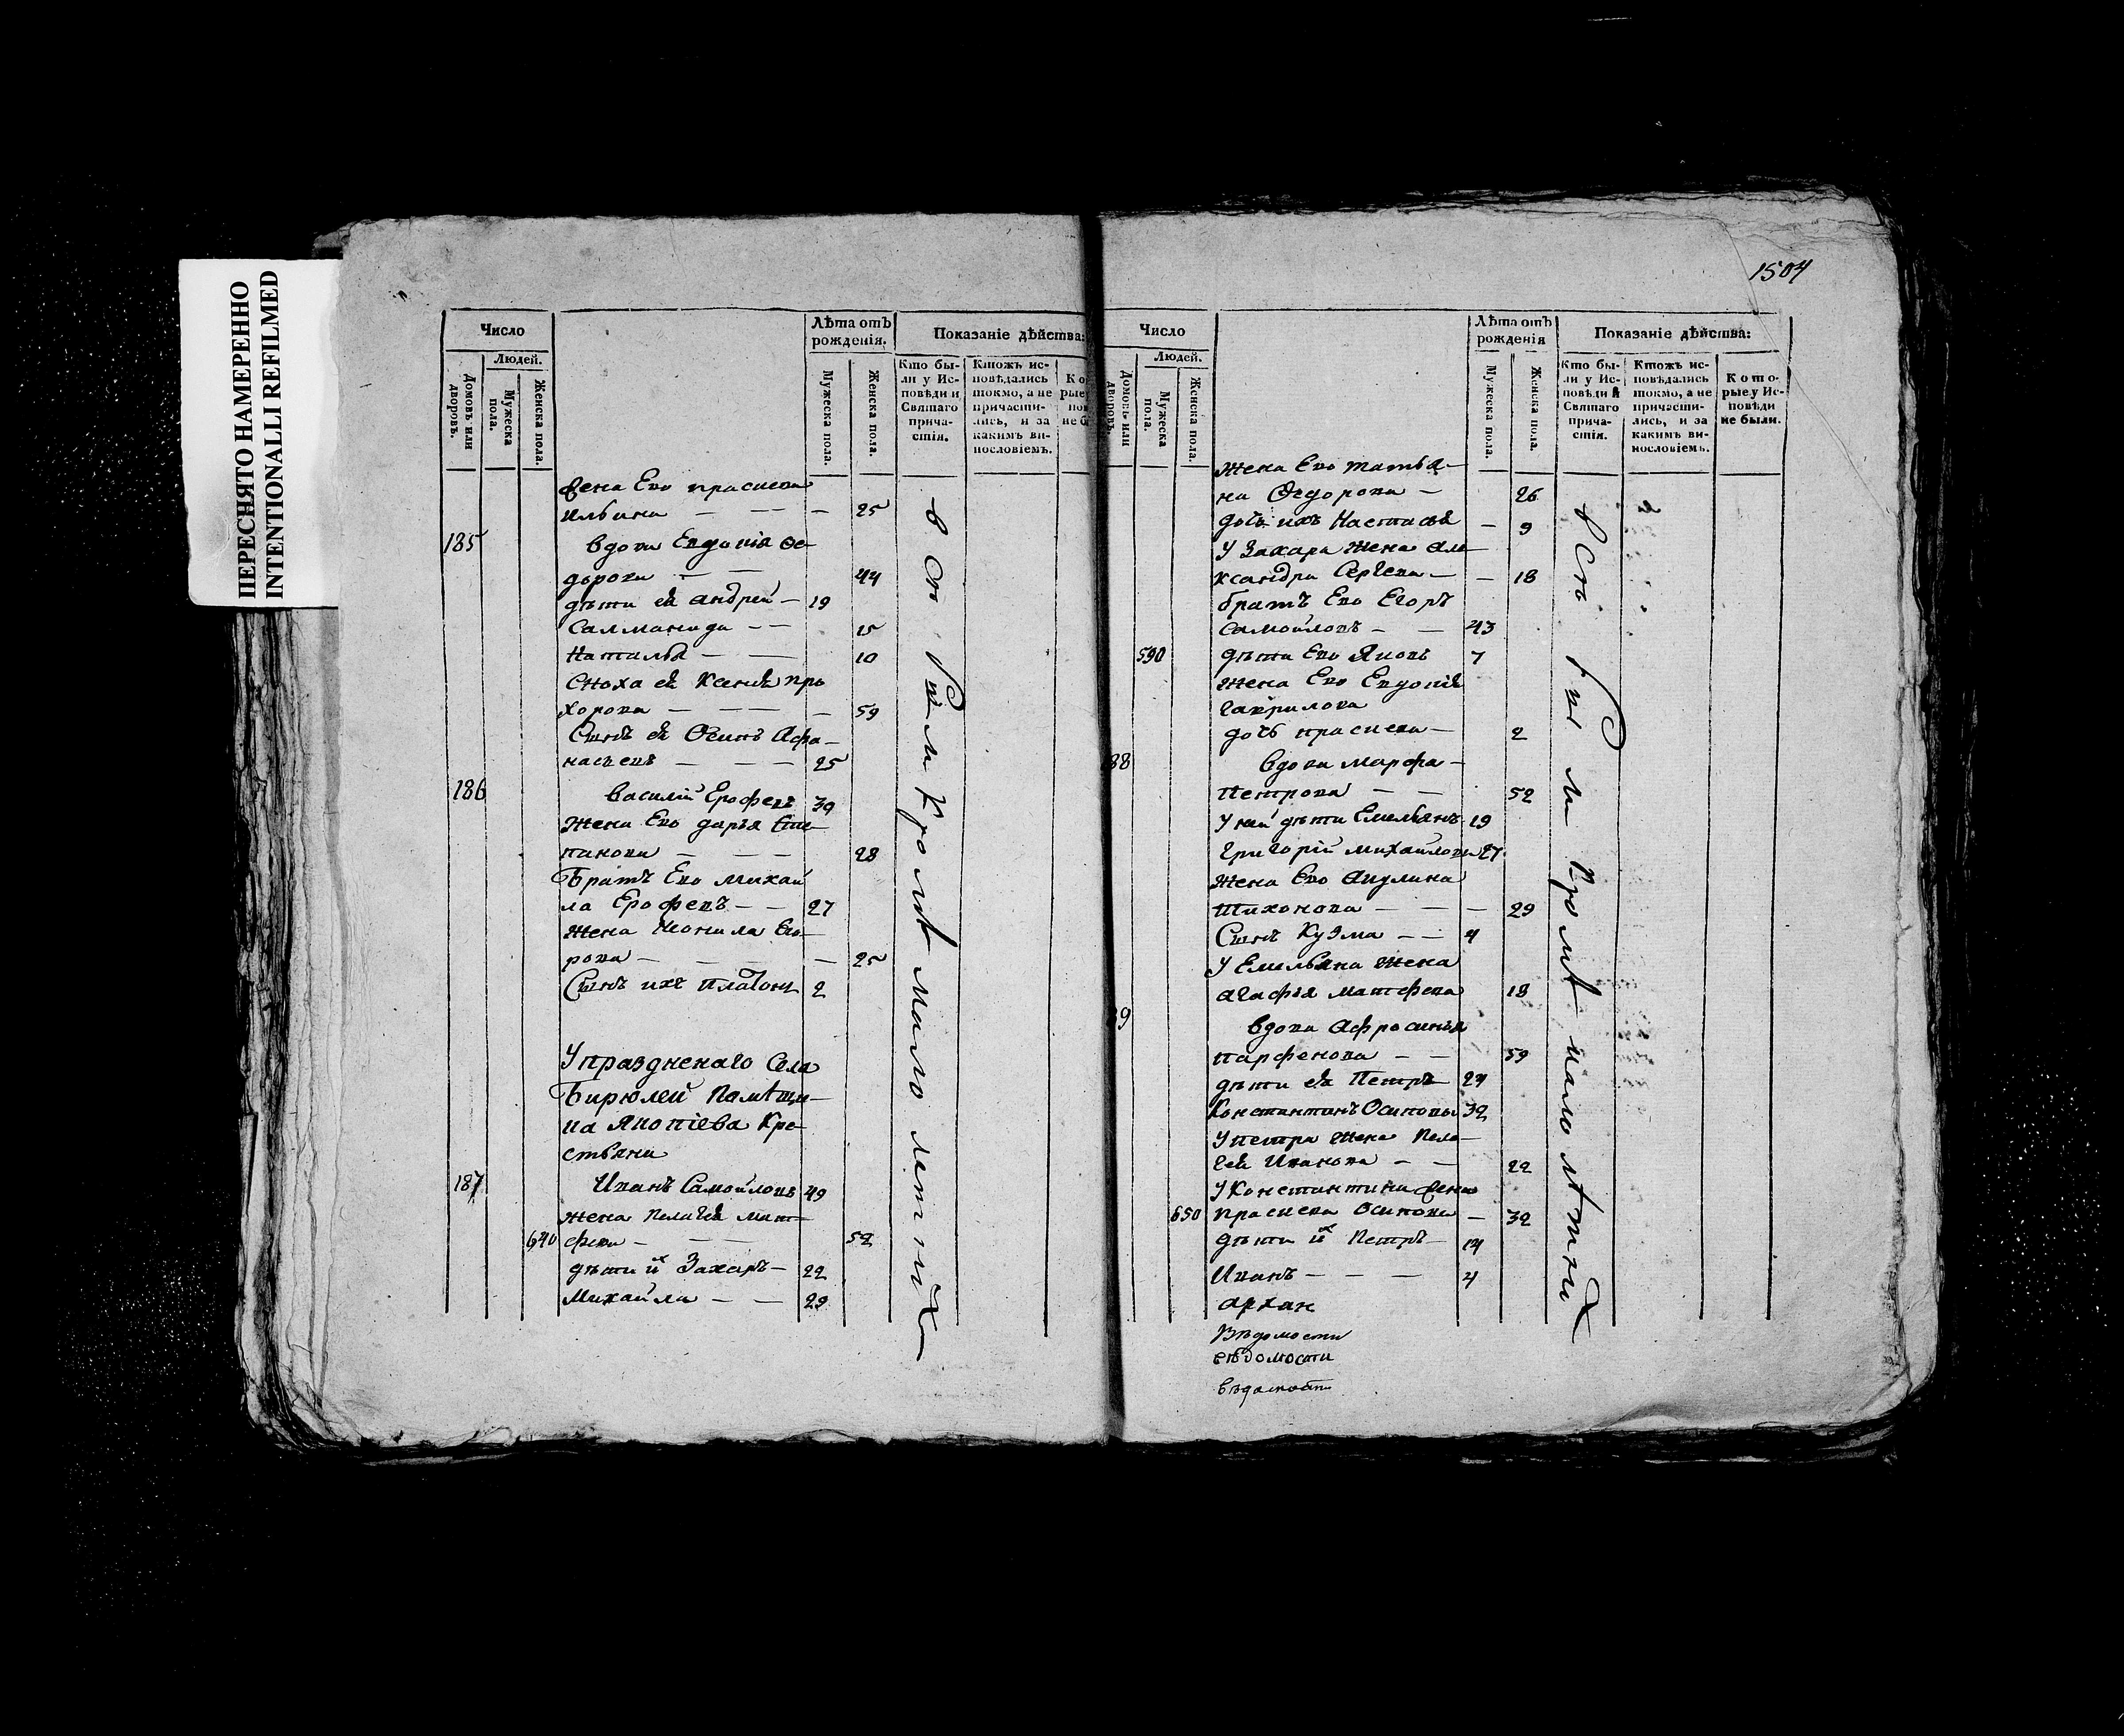 ПЕРЕСНЯТО НАМЕРЕННО
INTENTIONALLI REFILMED
1504
Число
Лѣта отъ
рожденія.
Показаніе дѣйства:
Людей.
Домовъ или
дворовъ.
Мужеска
пола.
Женска пола.
Мужеска пола.
Женска пола.
Кто бы-
ли у Ис-
повѣди и
Святаго
прича-
стія.
Ктожъ ис-
повѣдались
токмо, а не
причасти-
лись, и за
какимъ ви-
нословіемъ.
жена Ево прасковя
ильина — — — — 25
185 вдова Евдокія Ѳе-
дорова — — 44
дѣти ея андрей — 19
Саламанида — — 15
Наталья — — 10
Сноха ея Ксенья про
хорова — — — — 59
Сынъ ея Осипъ Афа-
насьевъ — — — 25
186 василій Ерофеевъ 39
жена Ево дарья Сте-
панова — — — 28
Братъ Ево михай
ла Ерофевъ — — 27
жена Неонила Его-
рова — — — — 25
Сынъ ихъ платонъ 2
Упраздненаго Села
Бирюлей Помѣщи-
ка Яковлева Кре-
стьяни
187 Иванъ Самойловъ 49
жена пелагея мат-
640 фева — — — 52
дѣти их Захаръ — 22
Михайла — — 29
всѣ были кромѣ малолетних
Число
Лѣта отъ
рожденія
Показаніе дѣйства:
Людей.
Домовъ или
дворовъ.
Мужеска
пола.
Женска пола.
Мужеска пола.
Женска пола.
Кто бы-
ли у Ис-
повѣди и
Святаго
прича-
стія.
Ктожъ ис-
повѣдались
токмо, а не
причасти-
лись, и за
какимъ ви-
нословіемъ.
Кото-
рые у Ис-
повѣди
не были.
жена Ево татья-
на Ѳедорова — 26
дочь ихъ Настасья — 9
у Захара жена але-
ксандра Сергева — — 18
братъ Ево Егоръ
самойловъ — — 43
590 дѣти Ево Яковъ 7
жена Ево Евдокія
гаврилова
дочь прасковя — 2
88 вдова марфа —
Петрова — — 52
у ней дѣти Емельянъ 19
григорій михайловы 27
жена Ево акулина
тихонова — — — 29
Сынъ Кузма — — 4
у Емельяна жена
агафья матфева 18
89 вдова афросинья
парфенова — — 59
дѣти ея Петръ 24
Константинъ Осиповы 32
у петра жена пела-
гея Иванова — — 22
у Константина жена
650 прасковя Осипова — 32
дѣти их Петръ — 14
Иванъ — — — 4
архан
Вѣдомости
вѣдомости
вѣдомости
всѣ были кромѣ малолѣтних